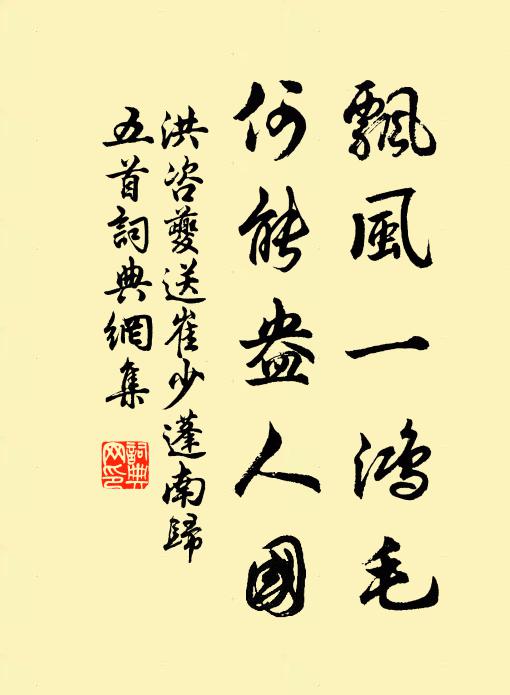 飄風一鴻毛
何能盎人國
洪咨夔送崔少蓬南歸
五首詞典網集
詞典网印